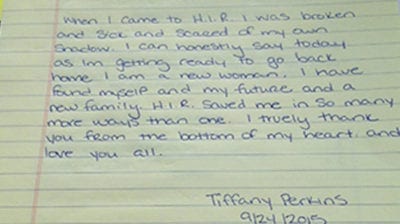 When I came to H.I.R. I was broken
and sick and scared of my own
shadow. I can honestly say today
as Im getting ready to go back
home I am a new woman. I have
found myself and my future and a
new family. H.I.R. saved me in so many
more ways than one. I truely thank
you from the bottom of my heart. and
love you all.
Tiffany Perkins
9/24/2015